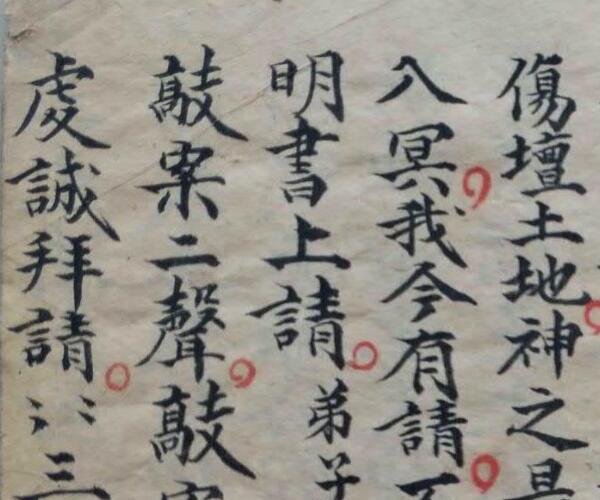 傷壇土地神之
八冥我今有請
明書上請弟子
敲案二聲敲
虔誠拜請三